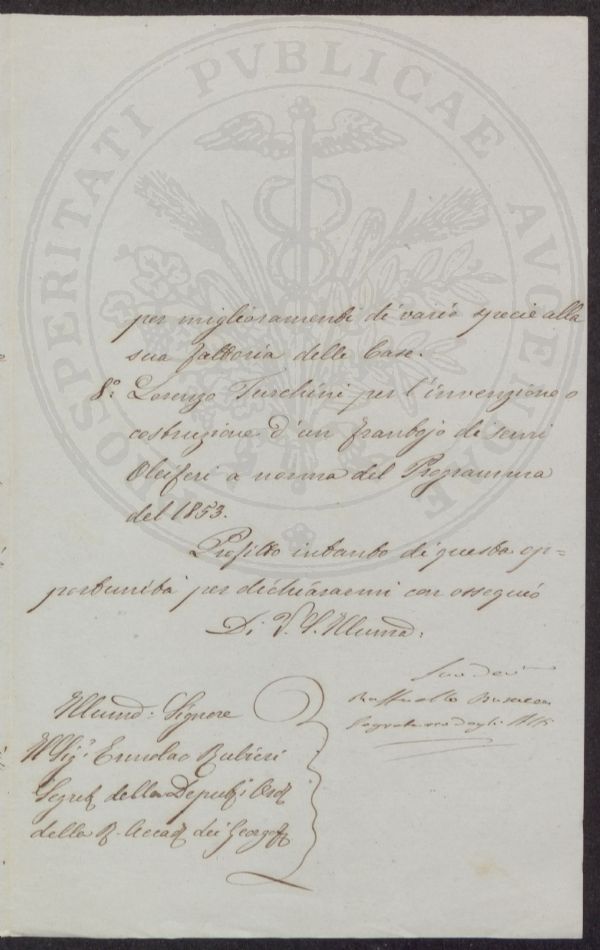 PROSPERITATI PVBLICAE AVGENDAE
per miglioramenti di varie specie alla
sua fattoria delle Case.
8.° Lorenzo Turchini per l'invenzione o
costruzione d'un frantojo di semi
Oleiferi a norma del Programma
del 1853.
Profitto intanto di questa op=
portunità per dichiararmi con ossequio
Di V. S. Illuma:
Suo Devmo
Raffaello Busacca
Segretario degli Atti
Illumo: Signore
Il Sigr Ermolao Rubieri
Segret della Deput Ord
della R. Accad dei Georgof